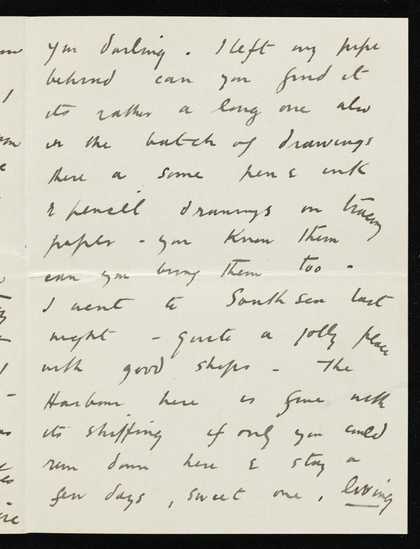 you darling. I left my pipe
behind can you find it
its rather a long one also
in the batch of drawings
there a some pen & ink
& pencil drawings on tracing
paper - you know them
can you bring them too -
I went to Southsea last
night - quite a jolly place
with good shops - The
Harbour here is fine with
its shipping if only you could
run down here & stay a
few days, sweet one, living